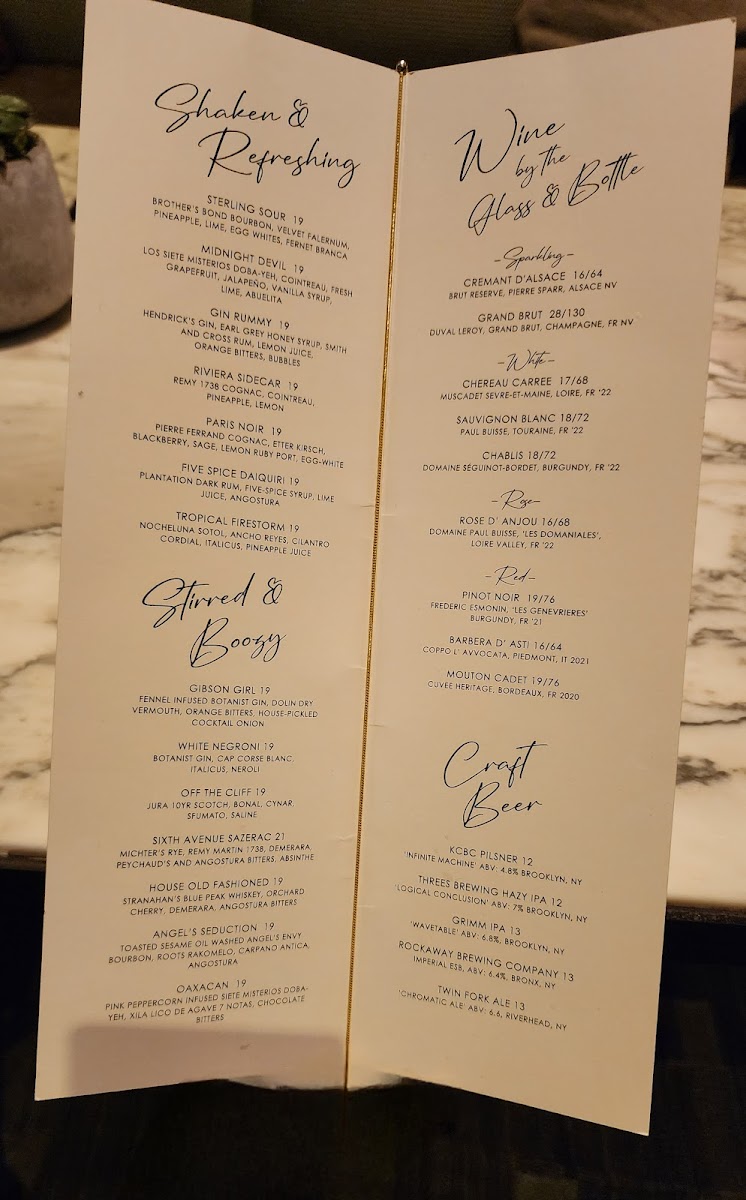 Shaken &
Refreshing
STERLING SOUR 19
BROTHER'S BOND BOURBON, VELVET FALERNUM,
PINEAPPLE, LIME, EGG WHITES, FERNET BRANCA
MIDNIGHT DEVIL 19
LOS SIETE MISTERIOS DOBA-YEH, COINTREAU, FRESH
GRAPEFRUIT, JALAPEÑO, VANILLA SYRUP,
LIME, ABUELITA
GIN RUMMY 19
HENDRICK'S GIN, EARL GREY HONEY SYRUP, SMITH
AND CROSS RUM, LEMON JUICE,
ORANGE BITTERS, BUBBLES
RIVIERA SIDECAR 19
REMY 1738 COGNAC, COINTREAU,
PINEAPPLE, LEMON
PARIS NOIR 19
PIERRE FERRAND COGNAC, ETTER KIRSCH,
BLACKBERRY, SAGE, LEMON RUBY PORT, EGG-WHITE
FIVE SPICE DAIQUIRI 19
PLANTATION DARK RUM, FIVE-SPICE SYRUP, LIME
JUICE, ANGOSTURA
TROPICAL FIRESTORM 19
NOCHELUNA SOTOL, ANCHO REYES, CILANTRO
CORDIAL, ITALICUS, PINEAPPLE JUICE
Stirred &
Boozy
GIBSON GIRL 19
FENNEL INFUSED BOTANIST GIN, DOLIN DRY
VERMOUTH, ORANGE BITTERS, HOUSE-PICKLED
COCKTAIL ONION
WHITE NEGRONI 19
BOTANIST GIN, CAP CORSE BLANC,
ITALICUS, NEROLI
OFF THE CLIFF 19
JURA 10YR SCOTCH, BONAL, CYNAR,
SFUMATO, SALINE
SIXTH AVENUE SAZERAC 21
MICHTER'S RYE, REMY MARTIN 1738, DEMERARA,
PEYCHAUD'S AND ANGOSTURA BITTERS, ABSINTHE
HOUSE OLD FASHIONED 19
STRANAHAN'S BLUE PEAK WHISKEY, ORCHARD
CHERRY, DEMERARA, ANGOSTURA BITTERS
ANGEL'S SEDUCTION 19
TOASTED SESAME OIL WASHED ANGEL'S ENVY
BOURBON, ROOTS RAKOMELO, CARPANO ANTICA,
ANGOSTURA
OAXACAN 19
PINK PEPPERCORN INFUSED SIETE MISTERIOS DOBA-
YEH, XILA LICO DE AGAVE 7 NOTAS, CHOCOLATE
BITTERS
Wine
by the
Glass & Bottle
-Sparkling-
CREMANT D'ALSACE 16/64
BRUT RESERVE, PIERRE SPARR, ALSACE NV
GRAND BRUT 28/130
DUVAL LEROY, GRAND BRUT, CHAMPAGNE, FR NV
-White-
CHEREAU CARREE 17/68
MUSCADET SEVRE-ET-MAINE, LOIRE, FR '22
SAUVIGNON BLANC 18/72
PAUL BUISSE, TOURAINE, FR '22
CHABLIS 18/72
DOMAINE SÉGUINOT-BORDET, BURGUNDY, FR '22
-Rose-
ROSE D' ANJOU 16/68
DOMAINE PAUL BUISSE, 'LES DOMANIALES',
LOIRE VALLEY, FR '22
-Red-
PINOT NOIR 19/76
FREDERIC ESMONIN, 'LES GENEVRIERES'
BURGUNDY, FR '21
BARBERA D' ASTI 16/64
COPPO L' AVVOCATA, PIEDMONT, IT 2021
MOUTON CADET 19/76
CUVÉE HERITAGE, BORDEAUX, FR 2020
Craft
Beer
KCBC PILSNER 12
'INFINITE MACHINE' ABV: 4.8% BROOKLYN, NY
THREES BREWING HAZY IPA 12
'LOGICAL CONCLUSION' ABV: 7% BROOKLYN, NY
GRIMM IPA 13
'WAVETABLE' ABV: 6.8%, BROOKLYN, NY
ROCKAWAY BREWING COMPANY 13
IMPERIAL ESB, ABV: 6.4%, BRONX, NY
TWIN FORK ALE 13
'CHROMATIC ALE' ABV: 6.6, RIVERHEAD, NY